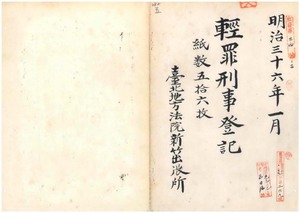 明治三十六年一月
輕罪刑事登記
紙数五拾六枚
臺北地方法院新竹出張所